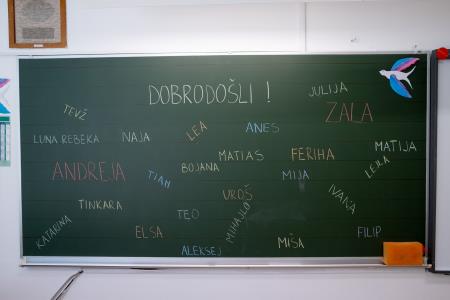 DOBRODOŠLI !
JULIJA
ZALA
TEVŽ
LUNA REBEKA
NAJA
LEA
ANES
MATIJA
MATIAS
FERIHA
BOJANA
LEJLA
ANDREJA
TIAN
MIJA
UROŠ
IVANA
TINKARA
TEO
MIHAJLO
KATARINA
ELSA
MIŠA
FILIP
ALEKSEJ